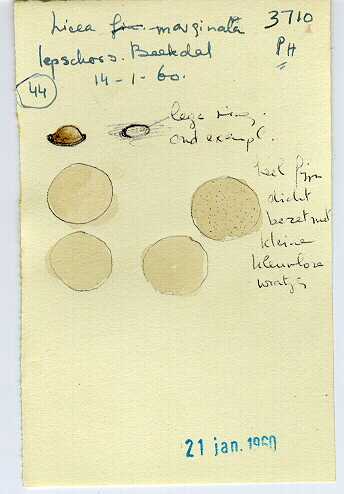 Licea marginata 3710
Iepschors. Beekdal PH
14-1-60.
44
lege ring.
oud exempl.
heel fijn
dicht
bezet met
kleine
kleurloze
wratjes
21 jan. 1960